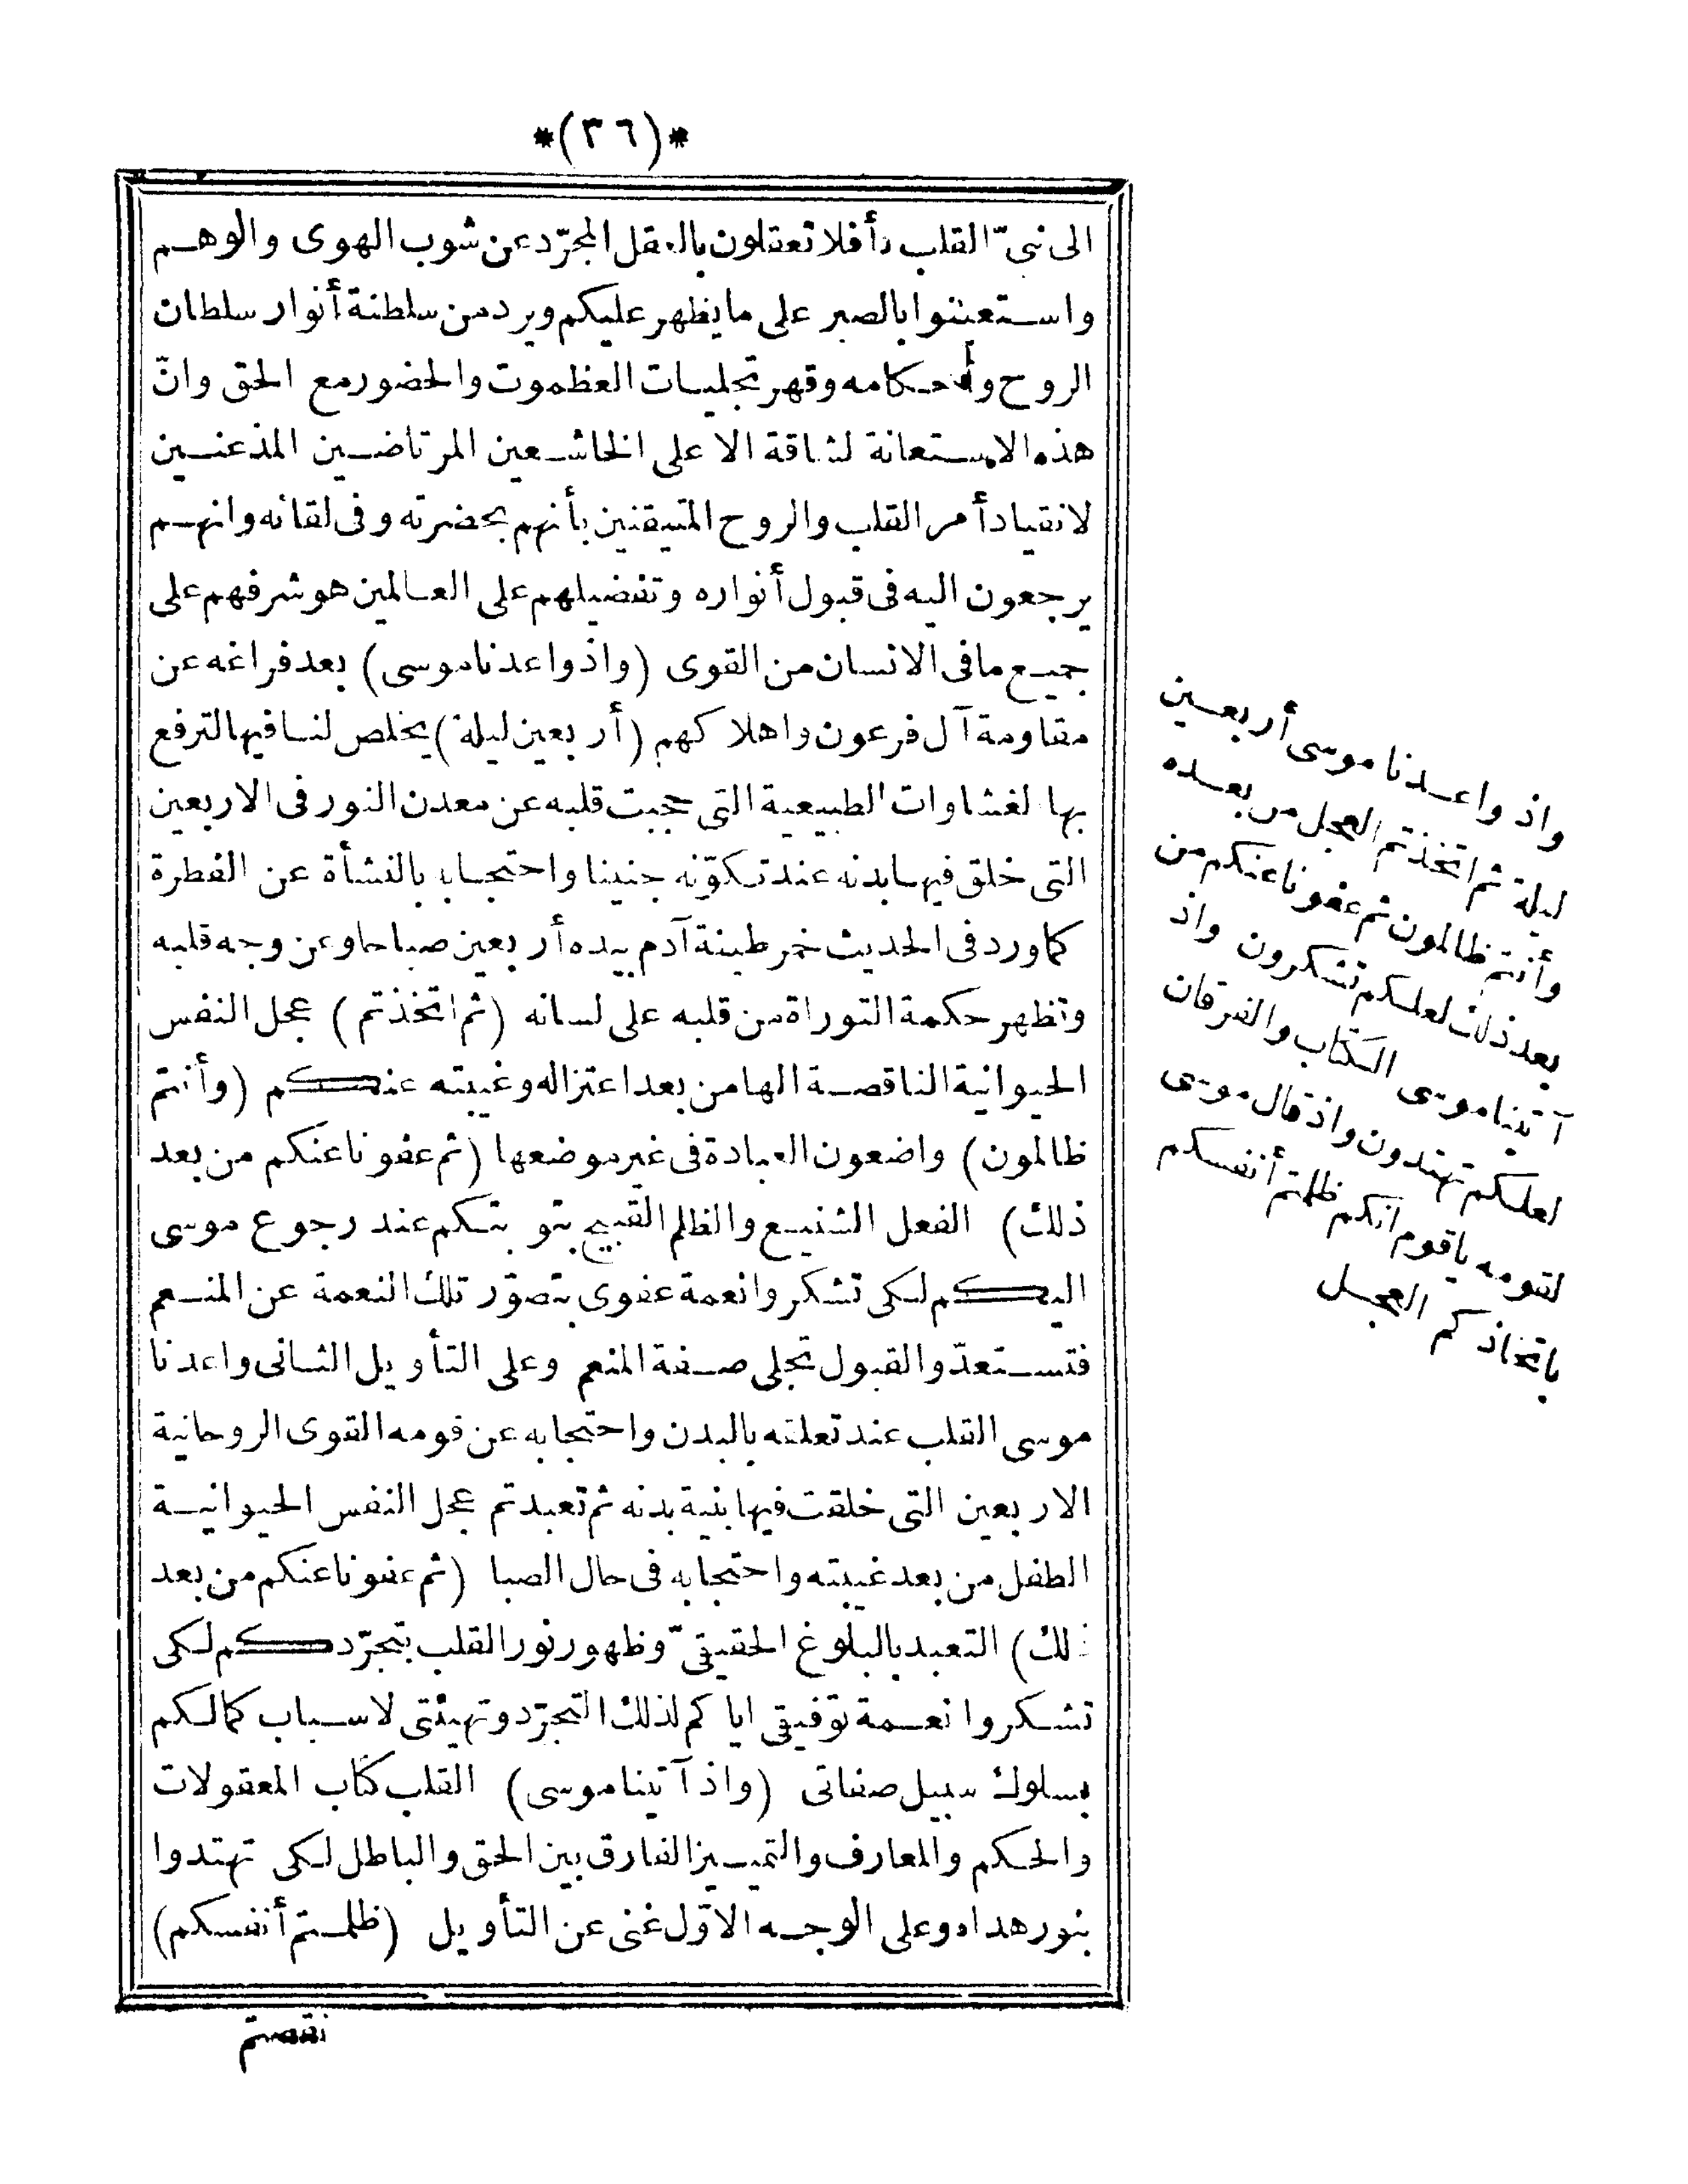 *(٣٦)*
الى نبىّ القلب أفلا تعقلون بالعقل المجرّد عن شوب الهوى والوهم
واستعينوا بالصبر على ما يظهر عليكم ويرد من سلطنة أنوار سلطان
الروح وأحكامه وقهر تجليات العظموت والحضور مع الحق وانّ
هذه الاستعانة لشاقة الا على الخاشعين المرتاضين المذعنين
لانقياد أمر القلب والروح المتيقنين بأنهم بحضرته وفى لقائه وانهم
يرجعون اليه فى قبول أنواره وتفضيلهم على العالمين هو شرفهم على
جميع ما فى الانسان من القوى (واذ واعدنا موسى) بعد فراغه عن
مقاومة آل فرعون واهلاكهم (أربعين ليلة) يخلص لنا فيها لترفع
بها لغشاوات الطبيعية التى حجبت قلبه عن معدن النور فى الاربعين
التى خلق فيها بدنه عند تكوّنه جنينا واحتجابه بالنشأة عن الفطرة
كما ورد فى الحديث خمر طينة آدم بيده أربعين صباحا وعن وجه قلبه
وتظهر حكمة التوراة من قلبه على لسانه (ثم اتخذتم) عجل النفس
الحيوانية الناقصة الها من بعد اعتزاله وغيبته عنكم (وأنتم
ظالمون) واضعون العبادة فى غير موضعها (ثم عفونا عنكم من بعد
ذلك) الفعل الشنيع والظلم القبيح بتوبتكم عند رجوع موسى
اليكم لكى تشكروا نعمة عفوى بتصوّر تلك النعمة عن المنعم
فتستعدّوا لقبول تجلى صفة المنعم وعلى التأويل الثانى واعدنا
موسى القلب عند تعلقه بالبدن واحتجابه عن قومه القوى الروحانية
الاربعين التى خلقت فيها بنية بدنه ثم تعبدتم عجل النفس الحيوانية
الطفل من بعد غيبته واحتجابه فى حال الصبا (ثم عفونا عنكم من بعد
ذلك) التعبد بالبلوغ الحقيقىّ وظهور نور القلب بتجرّدكم لكى
تشكروا نعمة توفيقى اياكم لذلك التجرّد وتهيئتى لاسباب كمالكم
بسلوك سبيل صفاتى (واذ آتينا موسى) القلب كتاب المعقولات
والحكم والمعارف والتمييز الفارق بين الحق والباطل لكى تهتدوا
بنور هداه وعلى الوجه الاوّل غنى عن التأويل (ظلمتم أنفسكم)
نقصتم
واذ واعدنا موسى أربعين
ليلة ثم اتخذتم العجل من بعده
وأنتم ظالمون ثم عفونا عنكم من
بعد ذلك لعلكم تشكرون واذ
آتينا موسى الكتاب والفرقان
لعلكم تهتدون واذ قال موسى
لقومه ياقوم انكم ظلمتم أنفسكم
باتخاذكم العجل